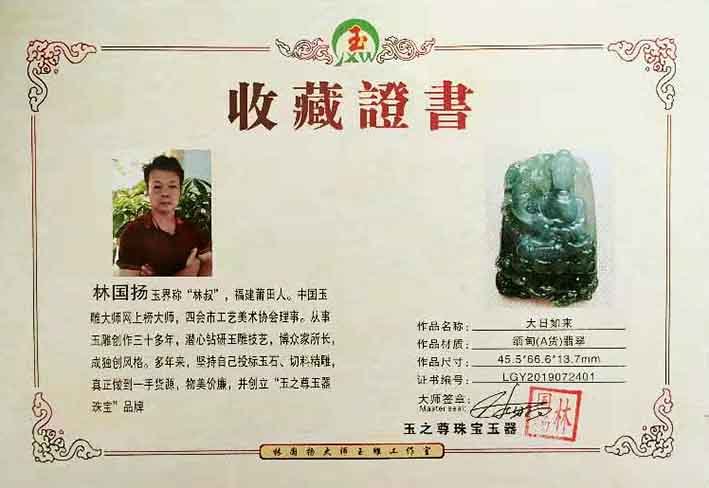 玉
JXW
收藏證書
林国扬 玉界称“林叔”，福建莆田人。中国玉
雕大师网上榜大师，四会市工艺美术协会理事。从事
玉雕创作三十多年，潜心钻研玉雕技艺，博众家所长，
成独创风格。多年来，坚持自己投标玉石、切料精雕，
真正做到一手货源，物美价廉，并创立“玉之尊玉器
珠宝”品牌
作品名称：大日如来
作品材质：缅甸(A货)翡翠
作品尺寸：45.5*66.6*13.7mm
证书编号：LGY2019072401
大师签章：
Master seal:
林国扬
玉之尊珠宝玉器
林国扬大师玉雕工作室